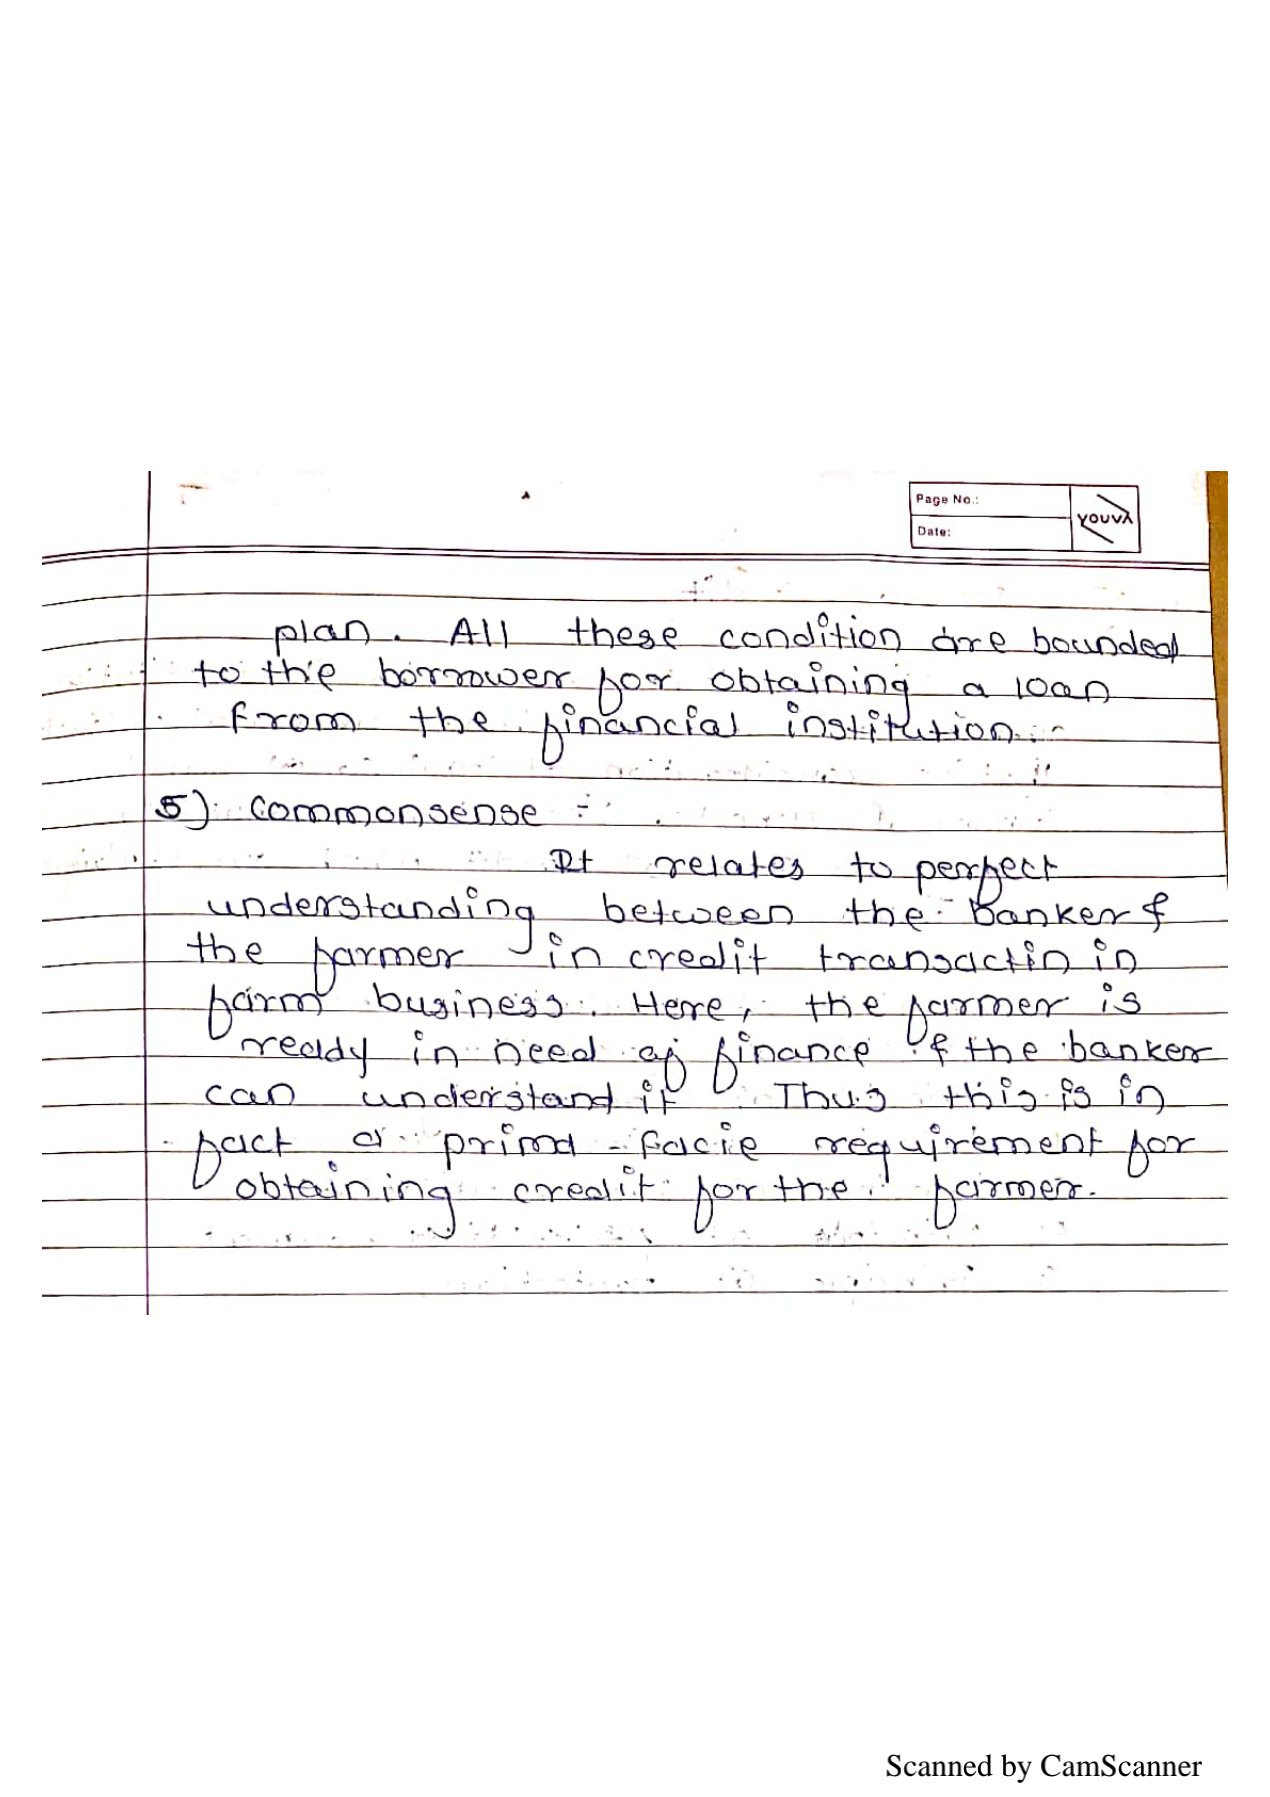 Page No.:
Date:
YOUVA
plan. All these condition are bounded
to the borrower for obtaining a loan
from the financial institution.
5) Commonsense :-
It relates to perfect
understanding between the Banker &
the farmer in credit transactin in
farm business. Here, the farmer is
ready in need of finance & the banker
can understand it. Thus this is in
fact a prima-facie requirement for
obtaining credit for the farmer.
Scanned by CamScanner